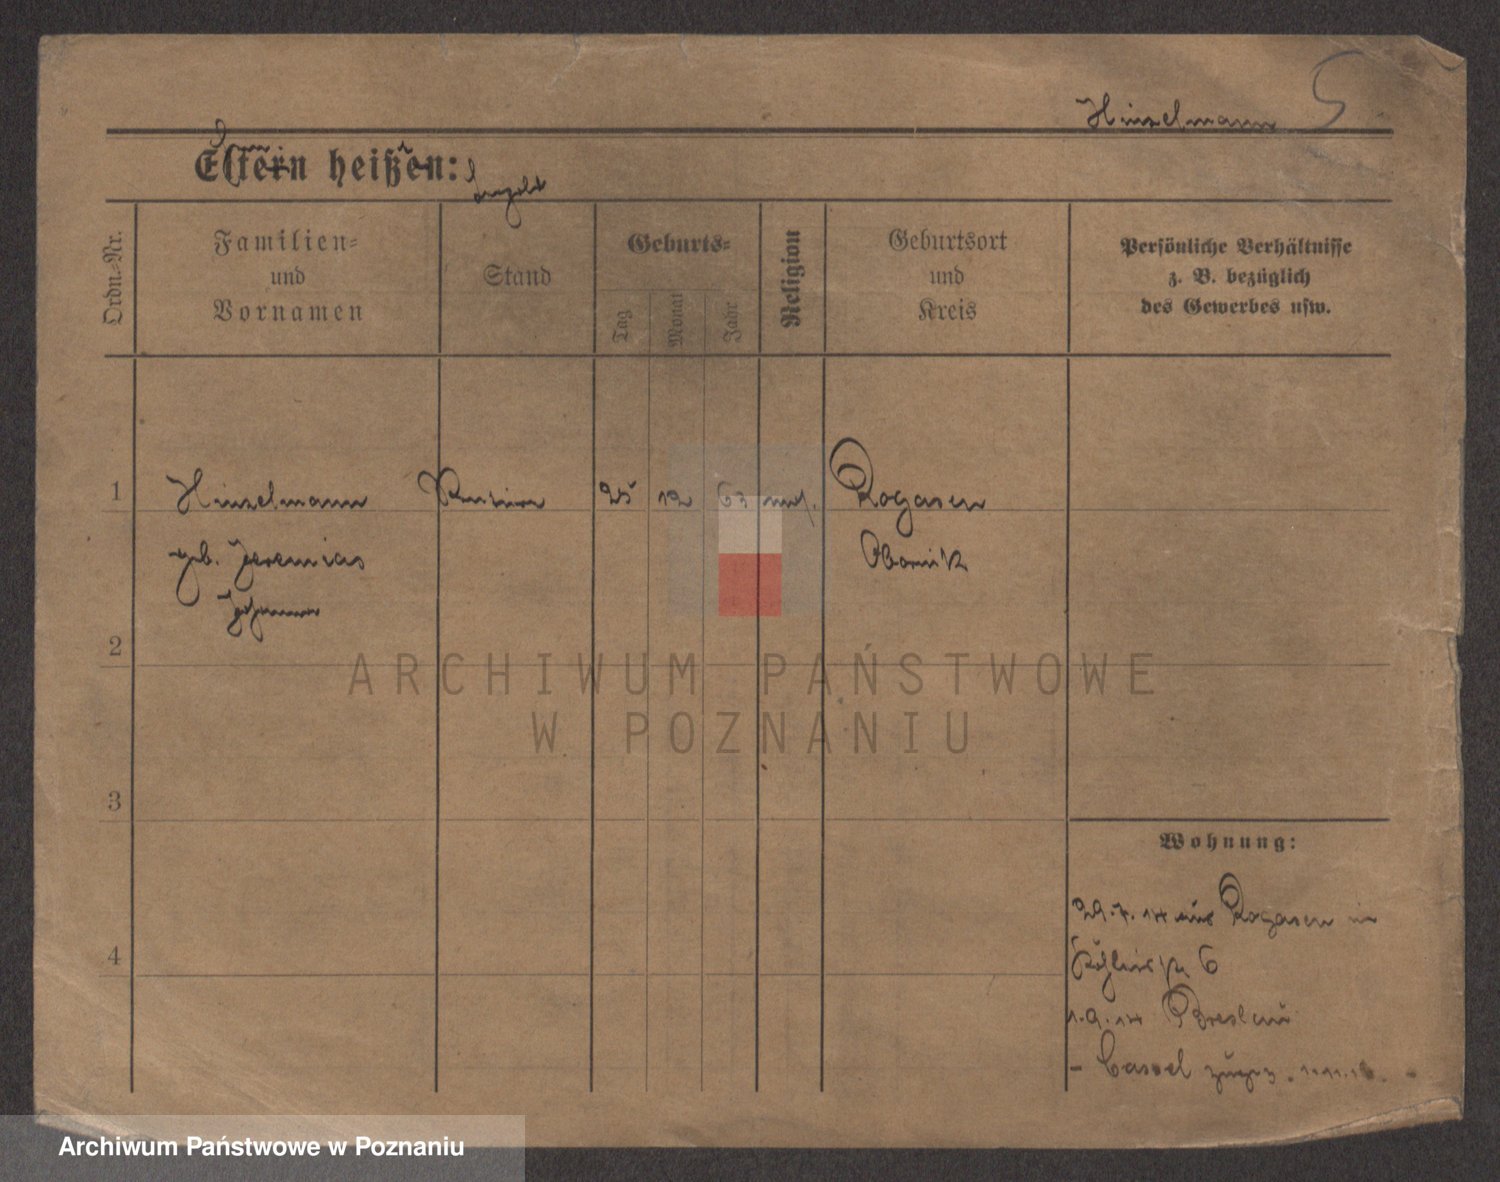 Hinzelmann
Eltern heißen:
Ordn.-Nr.
Familien-
und
Vornamen
Stand
Geburts-
Tag
Monat
Jahr
Religion
Geburtsort
und
Kreis
Persönliche Verhältnisse
z. B. bezüglich
des Gewerbes usw.
1
Hinzelmann
25
12
63
mos.
Rogasen
geb. Jeremias
Obornik
Johanna
2
3
4
Wohnung:
29.7.14 aus Rogasen in
6
1.9.14 Breslau
- Cassel
ARCHIWUM PAŃSTWOWE
W POZNANIU
Archiwum Państwowe w Poznaniu